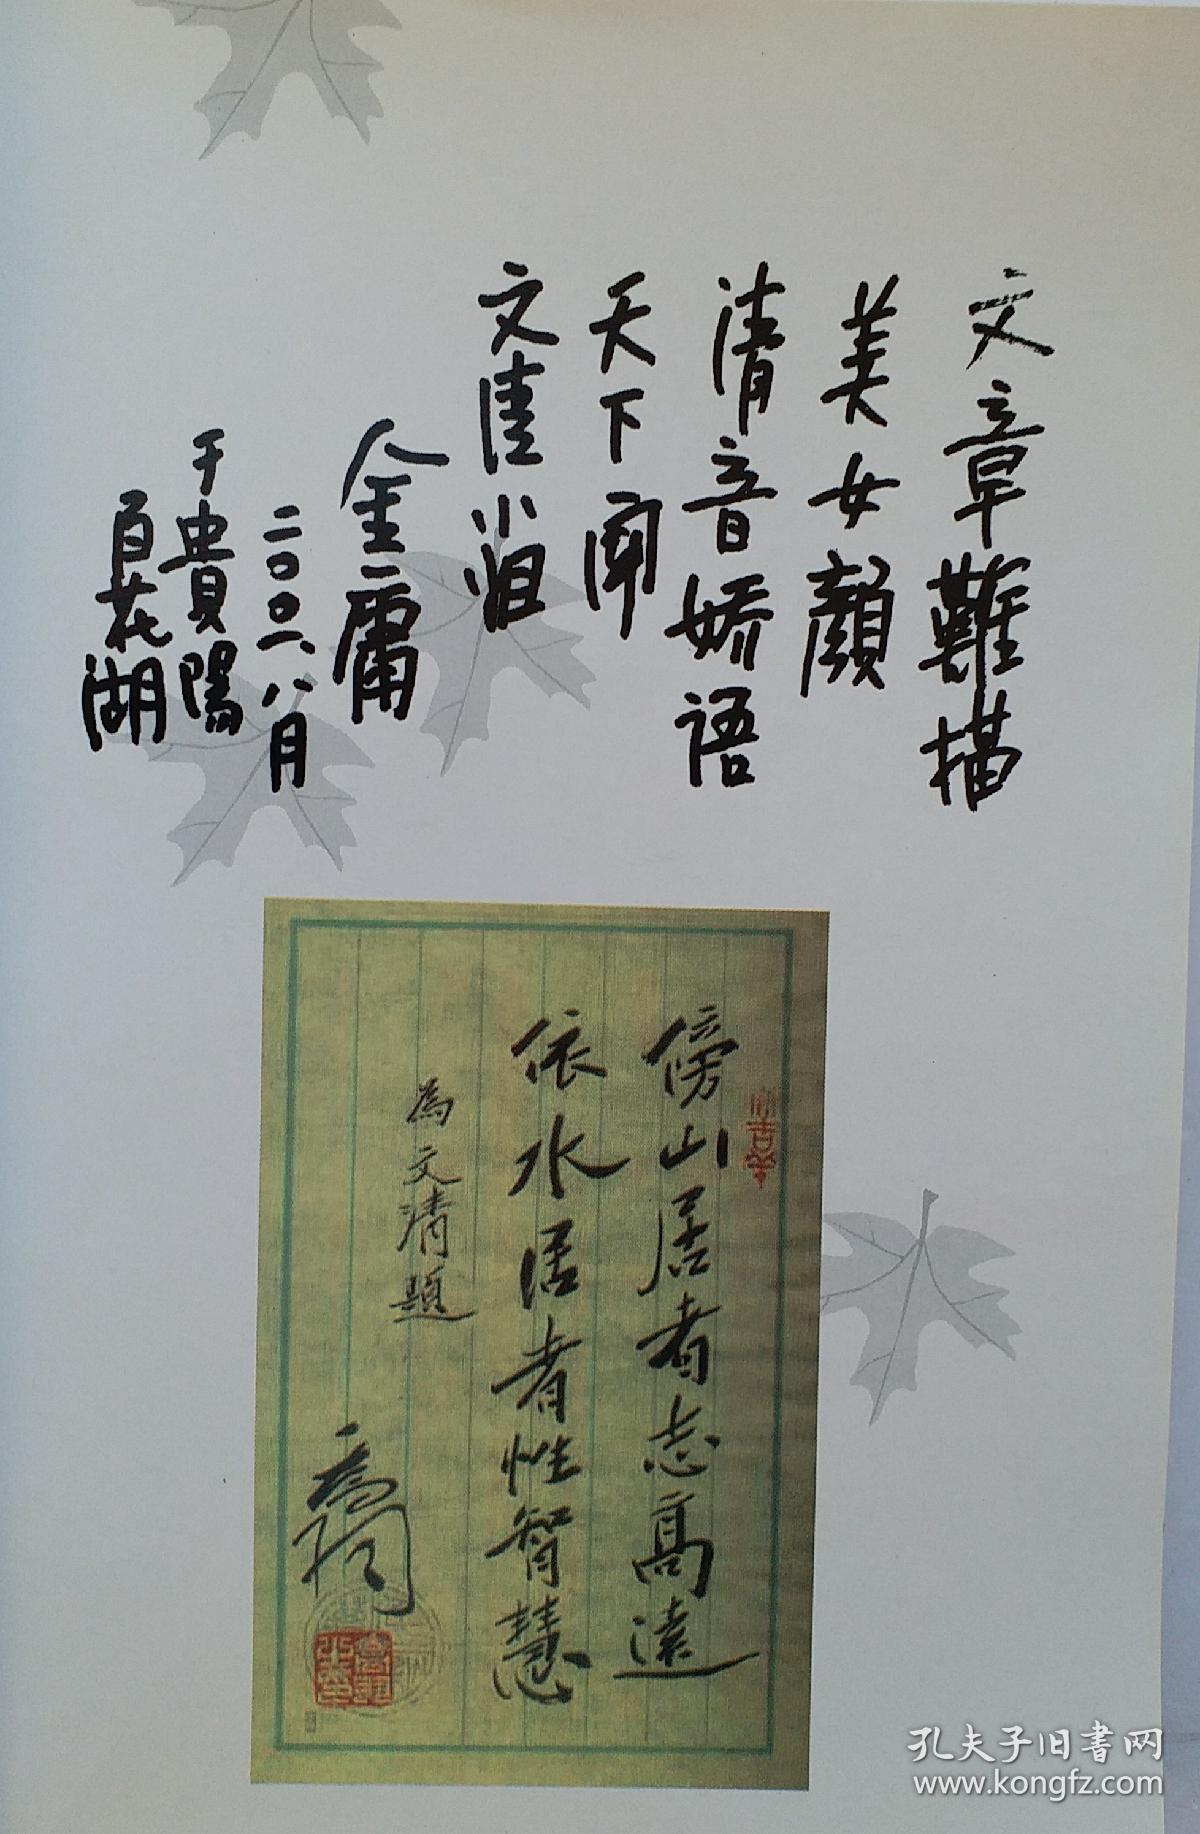 文章難描
美女顏
清音娇语
天下闻
文清小姐
金庸
二〇〇六八月
于貴陽
百花湖
傍山居者志高遠
依水居者性智慧
為文清題
孔夫子旧书网
www.kongfz.com